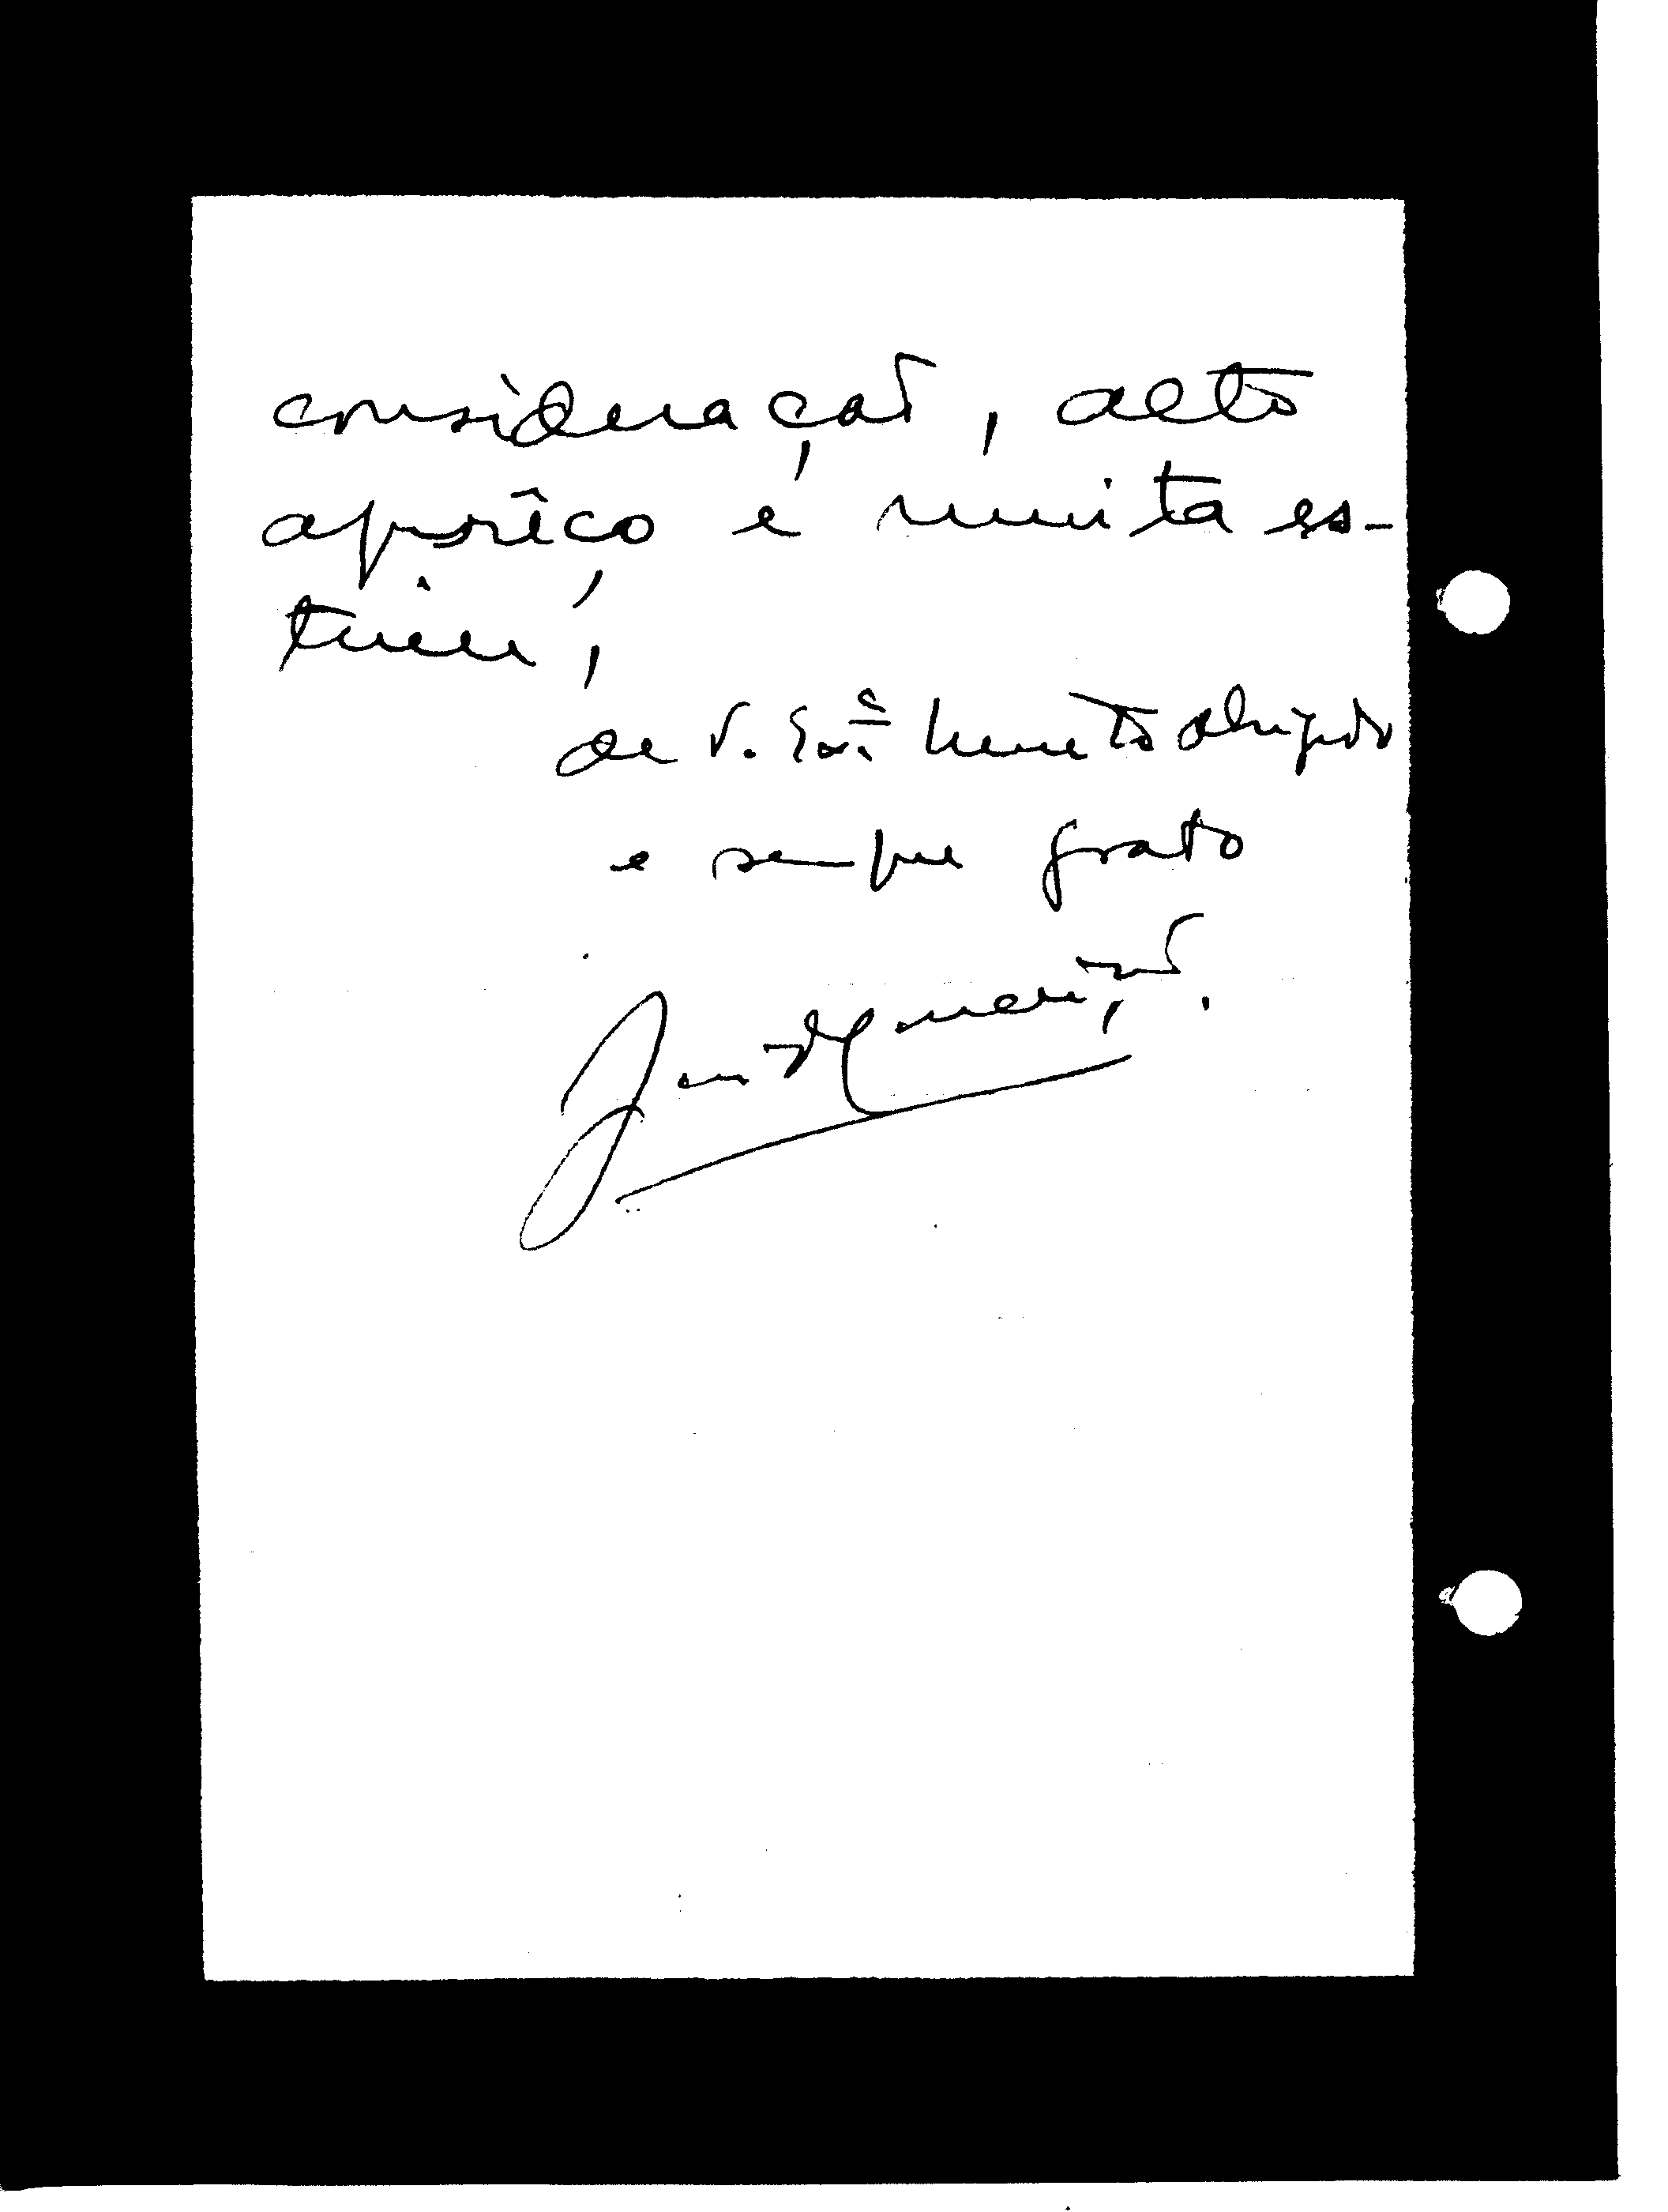 consideração, alto
aprêço e muita es-
tima,
de V. Exª. muito obrigado
e sempre grato